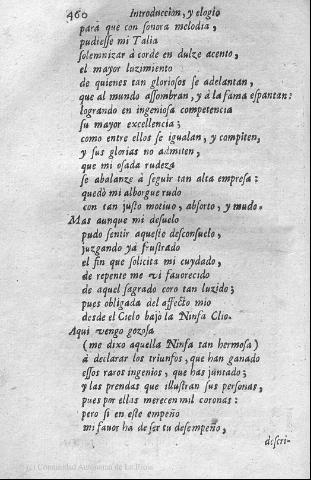 460 Introduccion, y elogio
para que con sonora melodia,
pudiesse mi Talia
solemnizar à corde en dulze acento,
el mayor luzimiento
de quienes tan gloriosos se adelantan,
que al mundo assombran, y à la fama espantan:
logrando en ingeniosa competencia
su mayor excellencia;
como entre ellos se igualan, y compiten,
y sus glorias no admiten,
que mi osada rudeza
se abalanze à seguir tan alta empresa:
quedò mi alborgue rudo
con tan justo motiuo, absorto, y mudo.
Mas aunque mi desuelo
pudo sentir aqueste desconsuelo,
juzgando yà frustrado
el fin que solicita mi cuydado,
de repente me vi fauorecido
de aquel sagrado coro tan luzido;
pues obligada del affecto mio
desde el Cielo bajò la Ninfa Clio.
Aqui vengo gozosa
(me dixo aquella Ninfa tan hermosa)
à declarar los triunfos, que han ganado
essos raros ingenios, que has juntado;
y las prendas que illustran sus personas,
pues por ellas merecen mil coronas:
pero si en este empeño
mi fauor ha de ser tu desempeño,
descri-
(c) Comunidad Autónoma de La Rioja